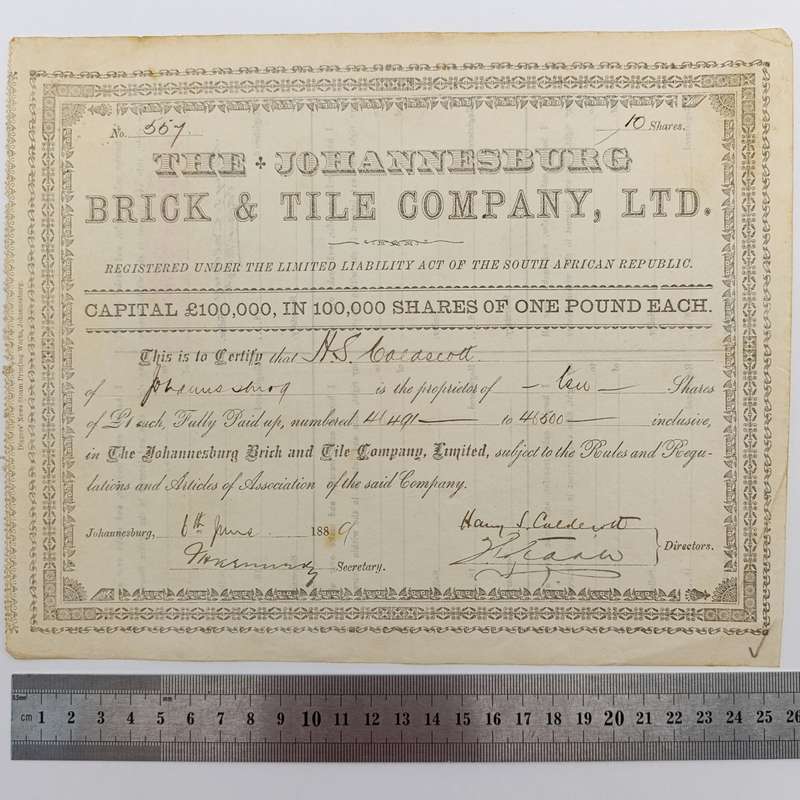 No. 557. 10 Shares.
THE JOHANNESBURG
BRICK & TILE COMPANY, LTD.
REGISTERED UNDER THE LIMITED LIABILITY ACT OF THE SOUTH AFRICAN REPUBLIC.
CAPITAL £100,000, IN 100,000 SHARES OF ONE POUND EACH.
This is to Certify that H. S. Caldecott.
of Johannesburg is the proprietor of — ten — Shares
of £1 each, Fully Paid up, numbered 46491 — to 46500 — inclusive,
in The Johannesburg Brick and Tile Company, Limited, subject to the Rules and Regu-
lations and Articles of Association of the said Company.
Harry S. Caldecott
Johannesburg, 6th June 1889
Directors.
Secretary.
Diggers' News Steam Printing Works, Johannesburg.
cm 1 2 3 4 5 6 7 8 9 10 11 12 13 14 15 16 17 18 19 20 21 22 23 24 25 26
0.5mm mm